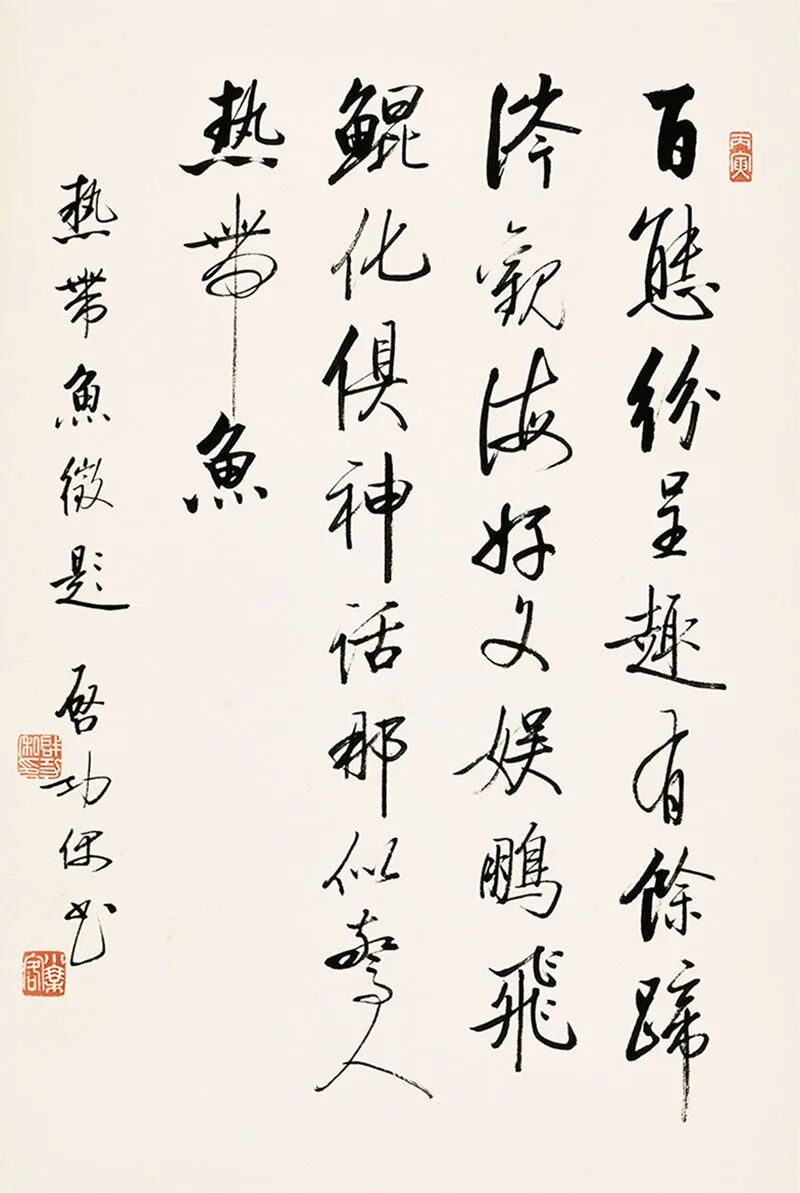 丙寅
百態紛呈趣有餘蹄
涔觀海好文娛鵬飛
鯤化俱神話那似驚人
熱帶魚
熱帶魚徵題 啓功書